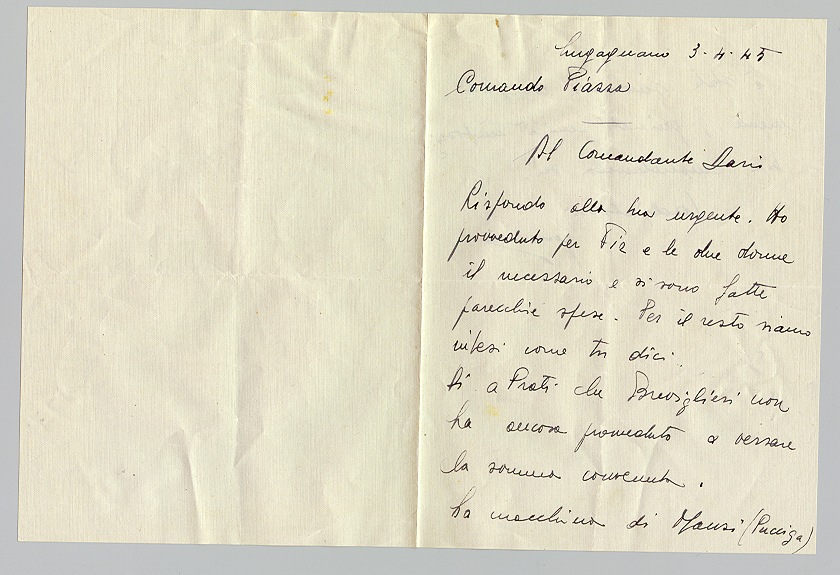 Lugagnano 3-4-45
Comando Piazza
Al Comandante Dario
Rispondo alla tua urgente. Ho
provveduto per Fiz e le due donne
il necessario e si sono fatte
parecchie spese. Per il resto siamo
intesi come tu dici.
Di a Prati che Breviglieri non
ha ancora provveduto a versare
la somma convenuta.
La macchina di (Pucciga)